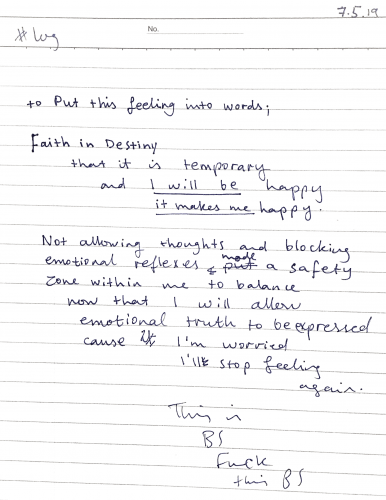 7.5.19
No.
# Log
to Put this feeling into words;
Faith in Destiny
that it is temporary
and I will be happy
it makes me happy.
Not allowing thoughts and blocking
emotional reflexes made a safety
zone within me to balance
now that I will allow
emotional truth to be expressed
cause I'm worried
I'll stop feeling
again.
This is
BS
Fuck
this BS